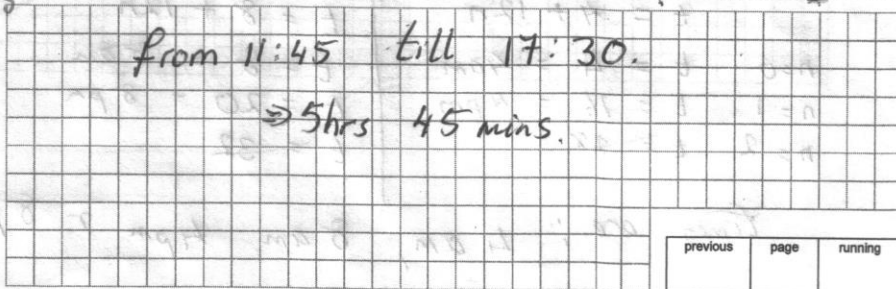 from 11:45 till 17:30.
⇒ 5hrs 45 mins.
previous page running